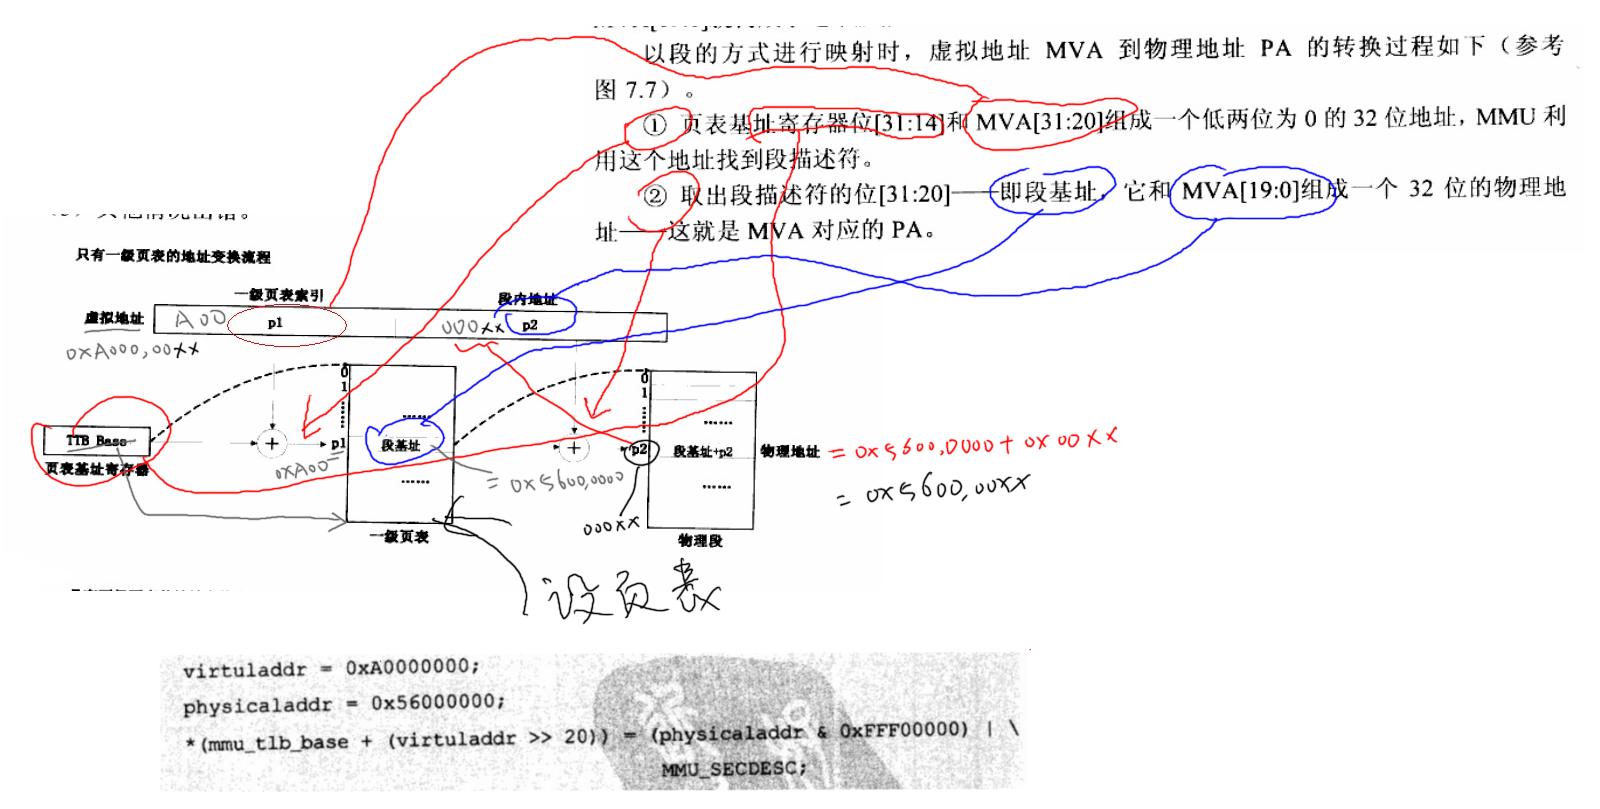 以段的方式进行映射时，虚拟地址 MVA 到物理地址 PA 的转换过程如下（参考
图 7.7）。
① 页表基址寄存器位[31:14]和 MVA[31:20]组成一个低两位为 0 的 32 位地址，MMU 利
用这个地址找到段描述符。
② 取出段描述符的位[31:20]——即段基址，它和 MVA[19:0]组成一个 32 位的物理地
址——这就是 MVA 对应的 PA。
其他情况出错。
只有一级页表的地址变换流程
一级页表索引
段内地址
虚拟地址
A00
p1
000xx
p2
0xA000,00xx
0
1
......
0
1
......
......
......
TTB Base
页表基址寄存器
+
p1
0xA00
段基址
= 0x5600,0000
+
p2
段基址+p2
物理地址
= 0x5600,0000 + 0x00xx
= 0x5600,00xx
......
......
000xx
一级页表
物理段
设页表
virtuladdr = 0xA0000000;
physicaladdr = 0x56000000;
*(mmu_tlb_base + (virtuladdr >> 20)) = (physicaladdr & 0xFFF00000) | \
MMU_SECDESC;